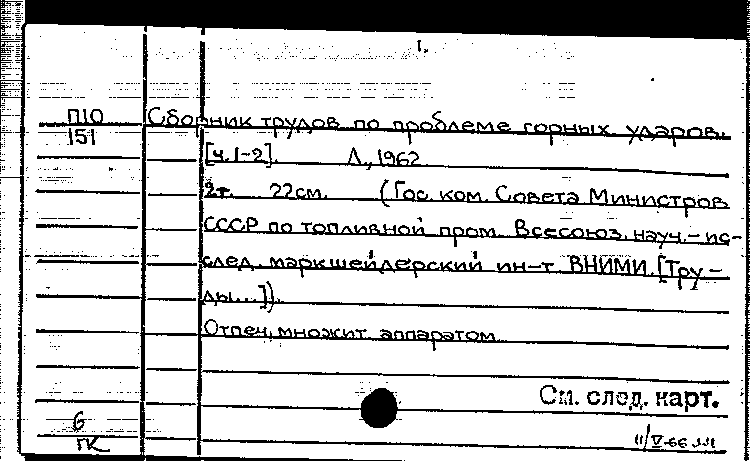 1.
П10 Сборник трудов по проблеме горных ударов.
151 [ч. 1-2]. Л., 1962
2т. 22см. (Гос. ком. Совета Министров
СССР по топливной пром. Всесоюз. науч.-ис-
след. маркшейдерский ин-т ВНИМИ. [Тру-
ды...]).
Отпеч. множит. аппаратом
См. след. карт.
6
ГК
11/V-66